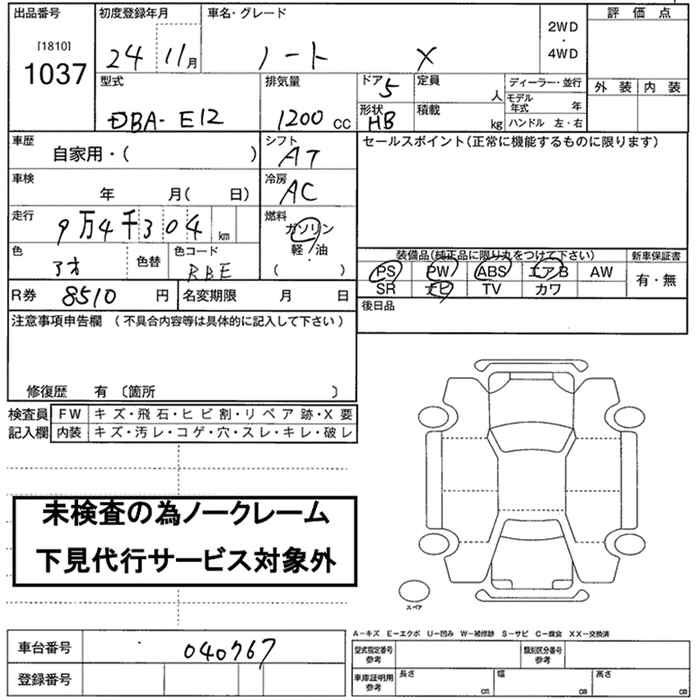 出品番号 初度登録年月 車名・グレード 評価点
[1810] 1037 24 11月 ノート X 2WD ・ 4WD
外装 内装
型式 排気量 ドア 5 定員 人 ディーラー・並行
DBA- E12 1200 CC 形状 HB 積載 kg モデル年式 年
ハンドル 左・右
車歴 シフト セールスポイント(正常に機能するものに限ります)
自家用・( ) AT
車検 年 月( 日) 冷房 AC
走行 9万4千304 km 燃料 ガソリン
軽・油
( )
色 色替 色コード RBE
装備品(純正品に限り丸をつけて下さい) 新車保証書
PS PW ABS エアB AW 有・無
SR ナビ TV カワ
R券 8510 円 名変期限 月 日 後日品
注意事項申告欄 (不具合内容等は具体的に記入して下さい)
修復歴 有 〔箇所 〕
検査員 FW キズ・飛石・ヒビ割・リペア跡・X要
記入欄 内装 キズ・汚レ・コゲ・穴・スレ・キレ・破レ
未検査の為ノークレーム
下見代行サービス対象外
スペア
A-キズ E-エクボ U-凹み W-補修跡 S-サビ C-腐食 XX-交換済
車台番号 040767 型式指定番号 参考 類別区分番号 参考
登録番号 車庫証明用 参考 長さ cm 幅 cm 高さ cm